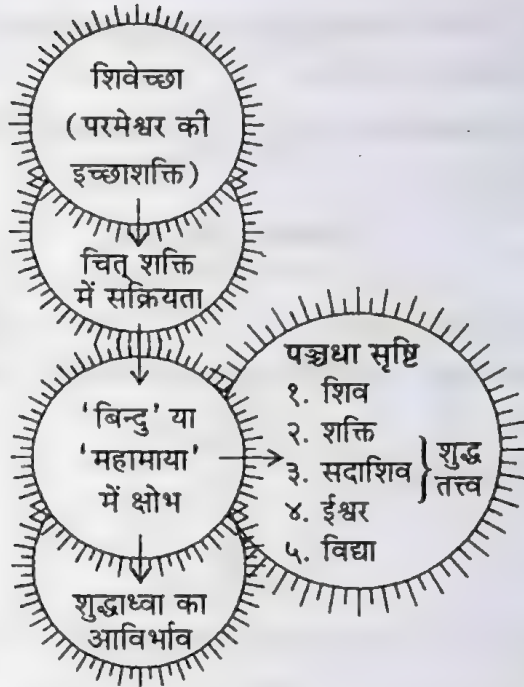 शिवेच्छा
(परमेश्वर की
इच्छाशक्ति)
चित् शक्ति
में सक्रियता
'बिन्दु' या
'महामाया'
में क्षोभ
शुद्धाध्वा का
आविर्भाव
पञ्चधा सृष्टि
१. शिव
२. शक्ति
३. सदाशिव
४. ईश्वर
५. विद्या
शुद्ध
तत्त्व